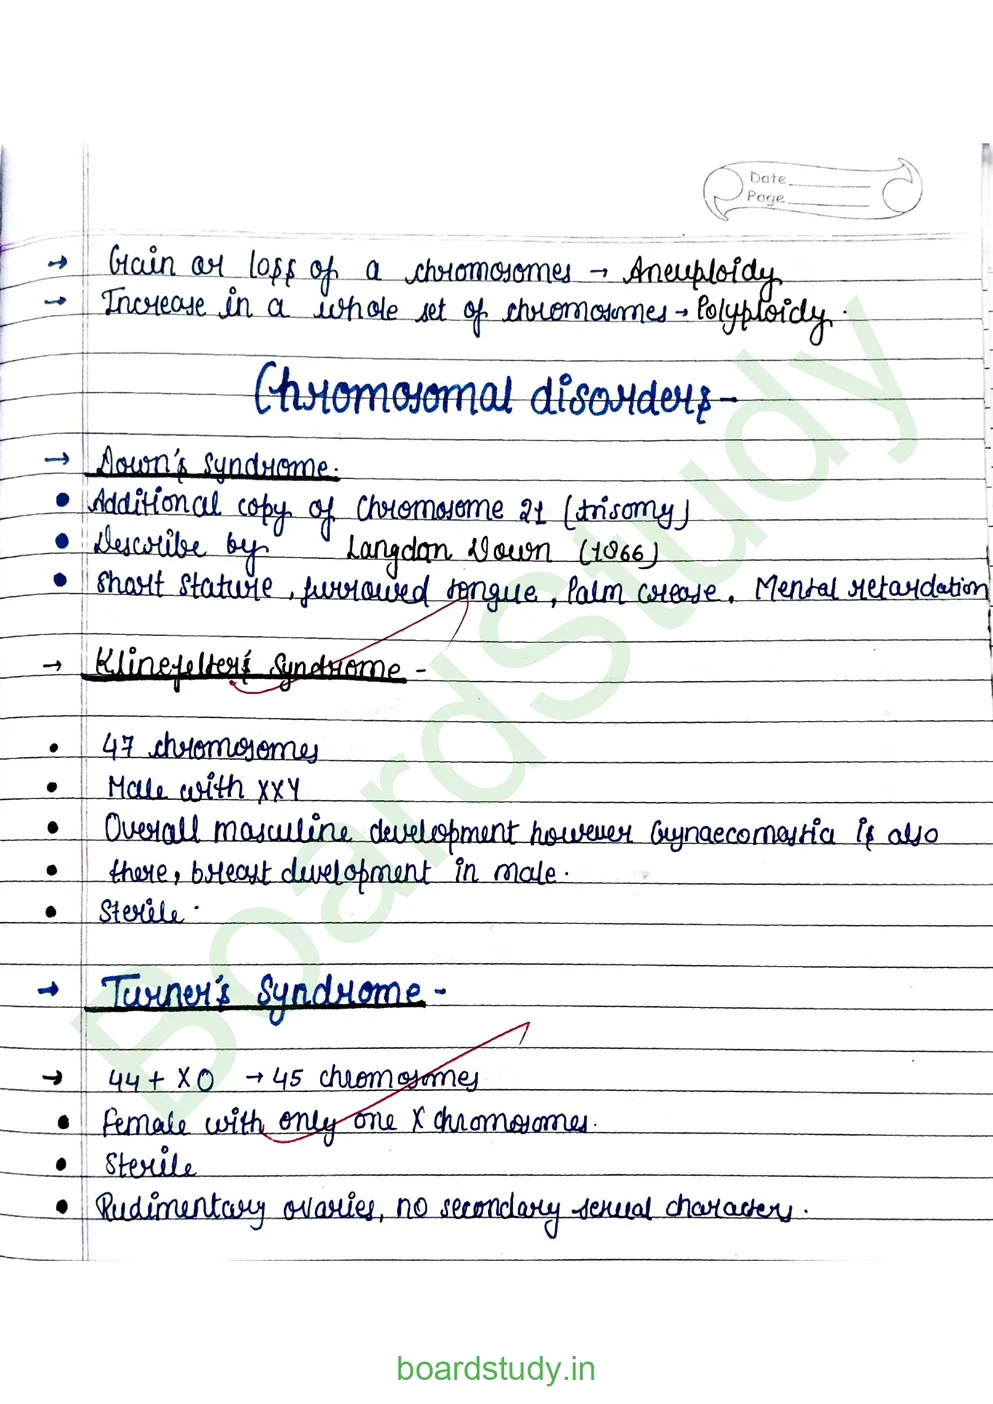 Date
Page
→ Gain or loss of a chromosomes → Aneuploidy
→ Increase in a whole set of chromosomes → Polyploidy.
Chromosomal disorders -
→ Down's syndrome.
• Additional copy of Chromosome 21 (trisomy)
• Describe by Langdon Down (1866)
• Short stature, furrowed tongue, Palm crease, Mental retardation
→ Klinefelter's Syndrome -
• 47 chromosomes
• Male with XXY
• Overall masculine development however Gynaecomastia is also
• there, breast development in male.
• Sterile.
→ Turner's Syndrome -
→ 44 + XO → 45 chromosomes
• Female with only one X chromosomes.
• Sterile
• Rudimentary ovaries, no secondary sexual characters.
BoardStudy
boardstudy.in